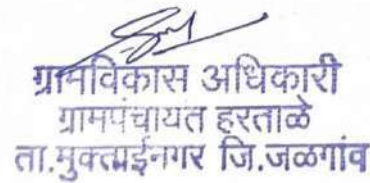 ग्रामविकास अधिकारी
ग्रामपंचायत हरताळे
ता.मुक्ताईनगर जि.जळगांव